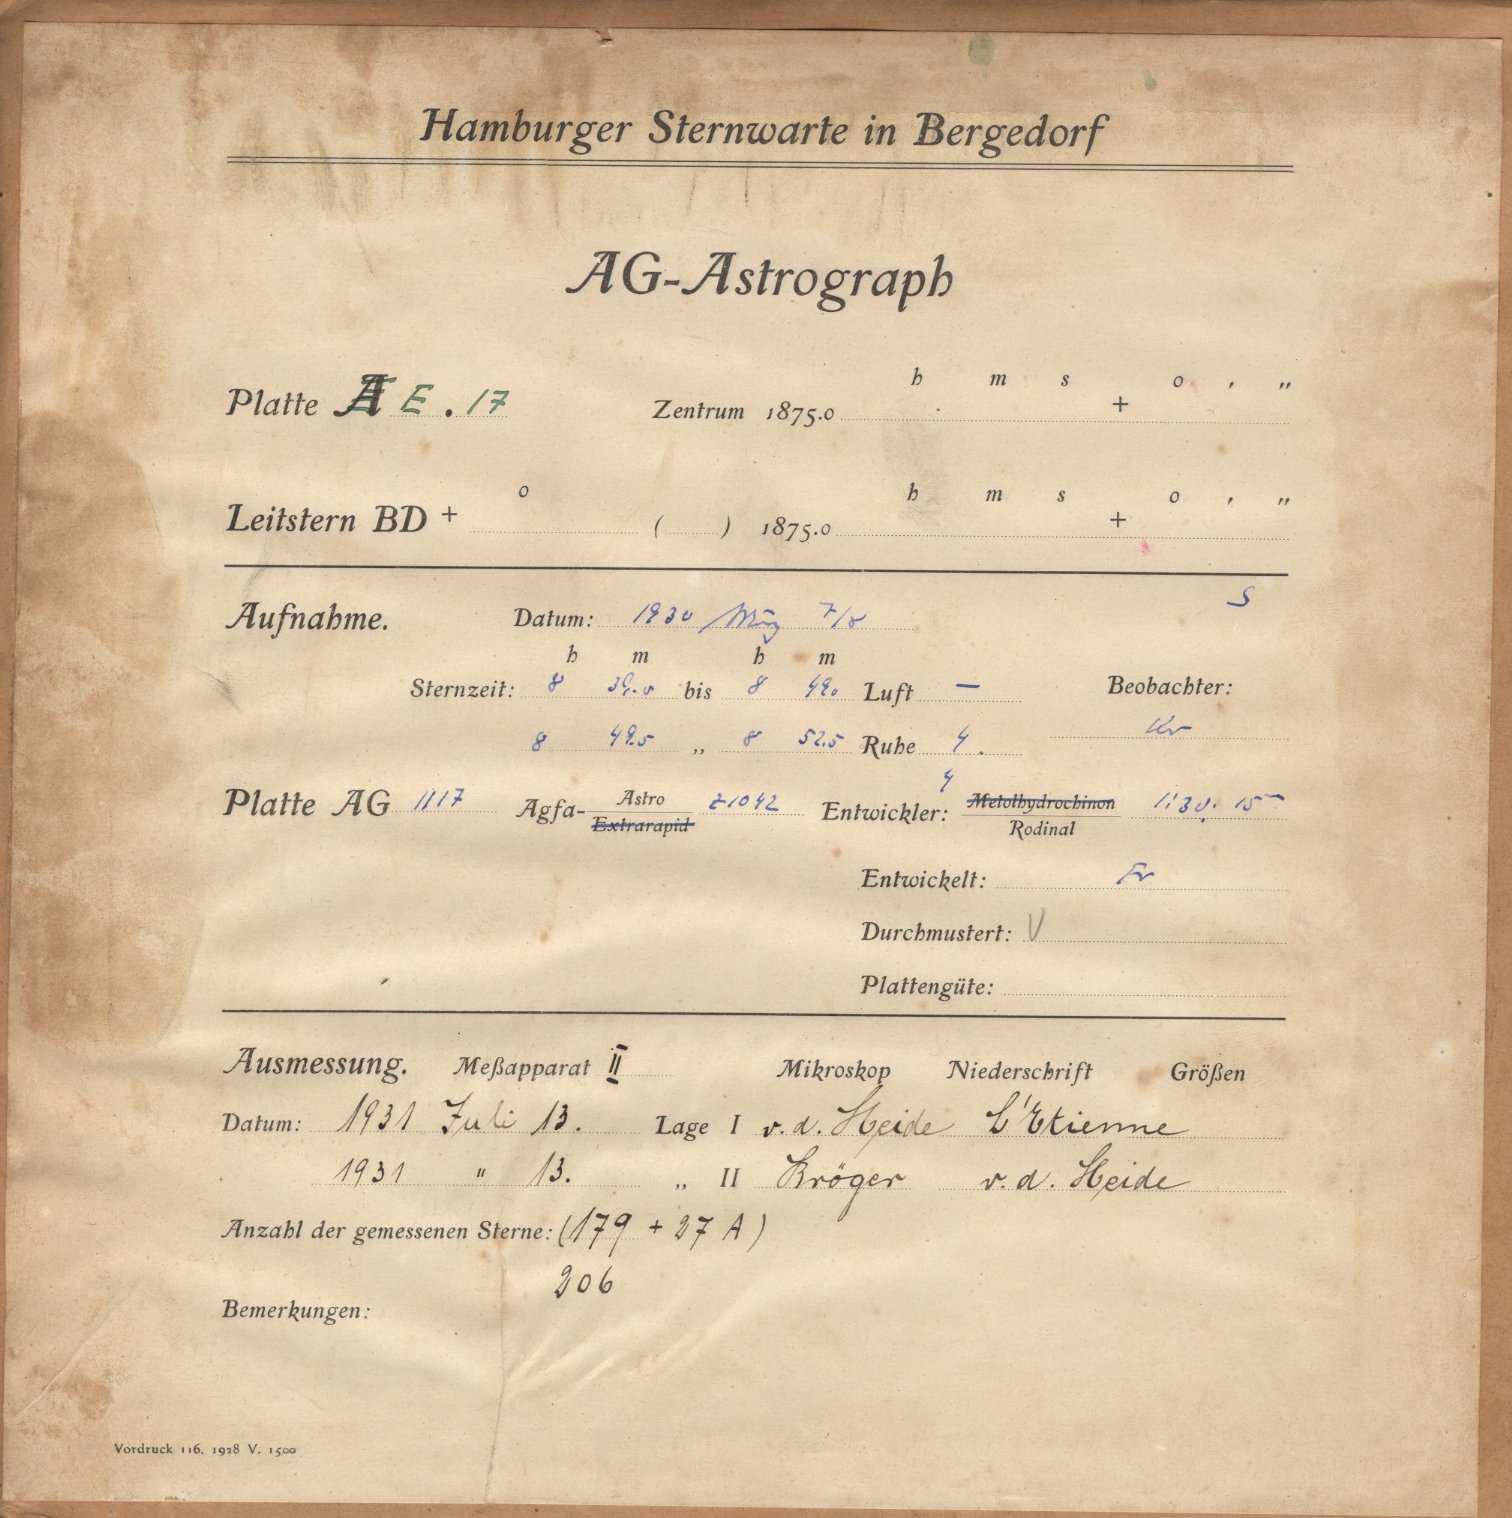 Hamburger Sternwarte in Bergedorf
AG-Astrograph
h m s o ' "
Platte E . 17 Zentrum 1875.0 +
o h m s o ' "
Leitstern BD + ( ) 1875.0 +
S
Aufnahme. Datum: 1930 März 7/8
h m h m
Sternzeit: 8 39.0 bis 8 49.0 Luft — Beobachter:
8 49.5 „ 8 52.5 Ruhe 4. Kr
4
Platte AG 1117 Agfa- Astro Z1042 Entwickler: Metolhydrochinon 1:30.
Extrarapid Rodinal
Entwickelt: Fr
Durchmustert: V
Plattengüte:
Ausmessung. Meßapparat II Mikroskop Niederschrift Größen
Datum: 1931 Juli 13. Lage I v. d. Heide L'Etienne
1931 " 13. „ II Kröger v. d. Heide
Anzahl der gemessenen Sterne: (179 + 27 A)
206
Bemerkungen:
Vordruck 116. 1928 V. 1500